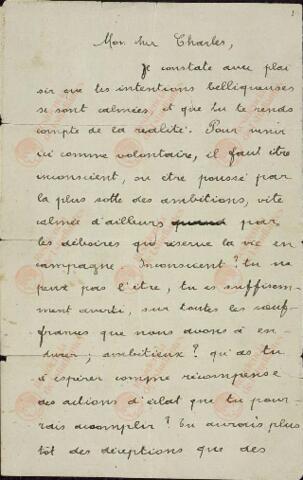 Mon cher Charles,
Je constate avec plai
sir que les intentions belliqueuses
se sont calmées, et que tu te rends
compte de la réalité. Pour venir
ici comme volontaire, il faut être
inconscient, ou être poussé par
la plus sotte des ambitions, vite
calmée d'ailleurs quand par
les déboires que réserve la vie en
campagne. Inconscient? tu ne
peux pas l'être, tu es suffisem-
ment averti, sur toutes les souf-
frances que nous avons à en-
durer; ambitieux? qu'as tu
à espérer comme récompense
des actions d'éclat que tu pour-
rais accomplir? Tu aurais plus
tôt des déceptions que des